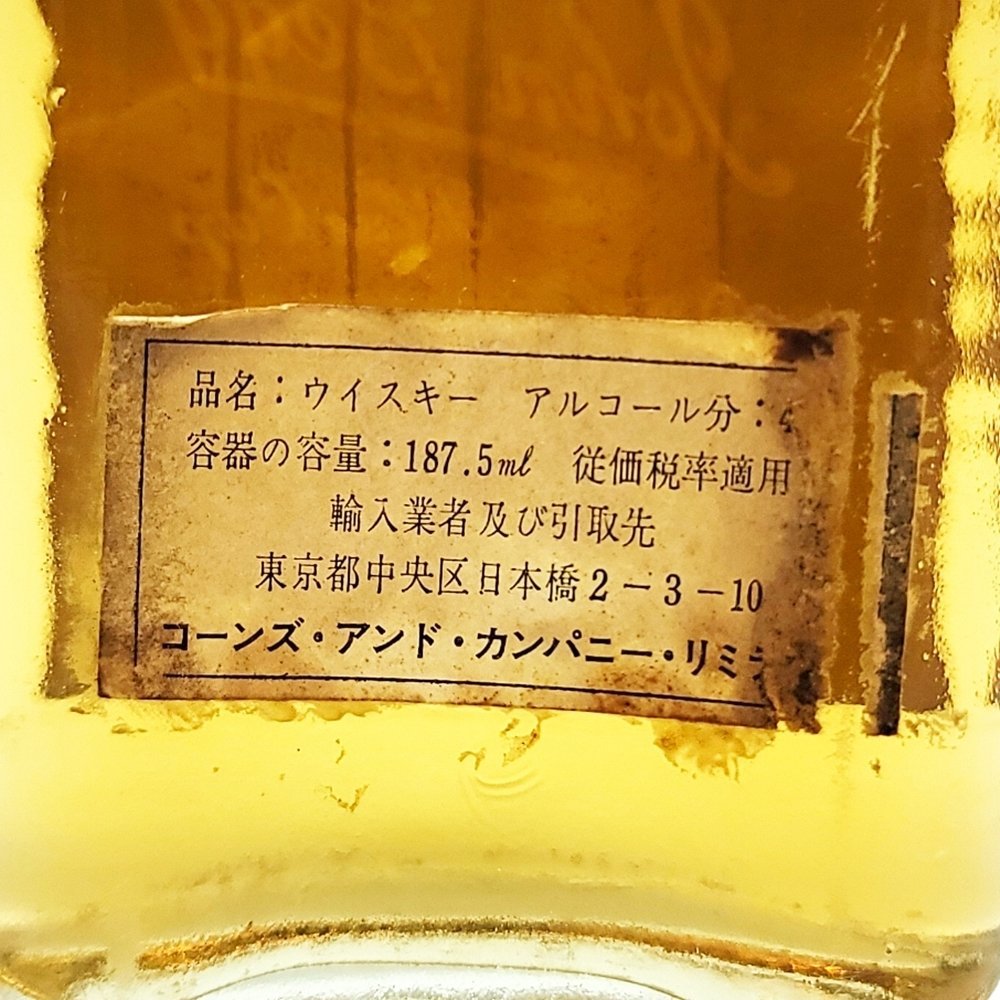 品名：ウイスキー　アルコール分：
容器の容量：187.5ml　従価税率適用
輸入業者及び引取先
東京都中央区日本橋2－3－10
コーンズ・アンド・カンパニー・リミ